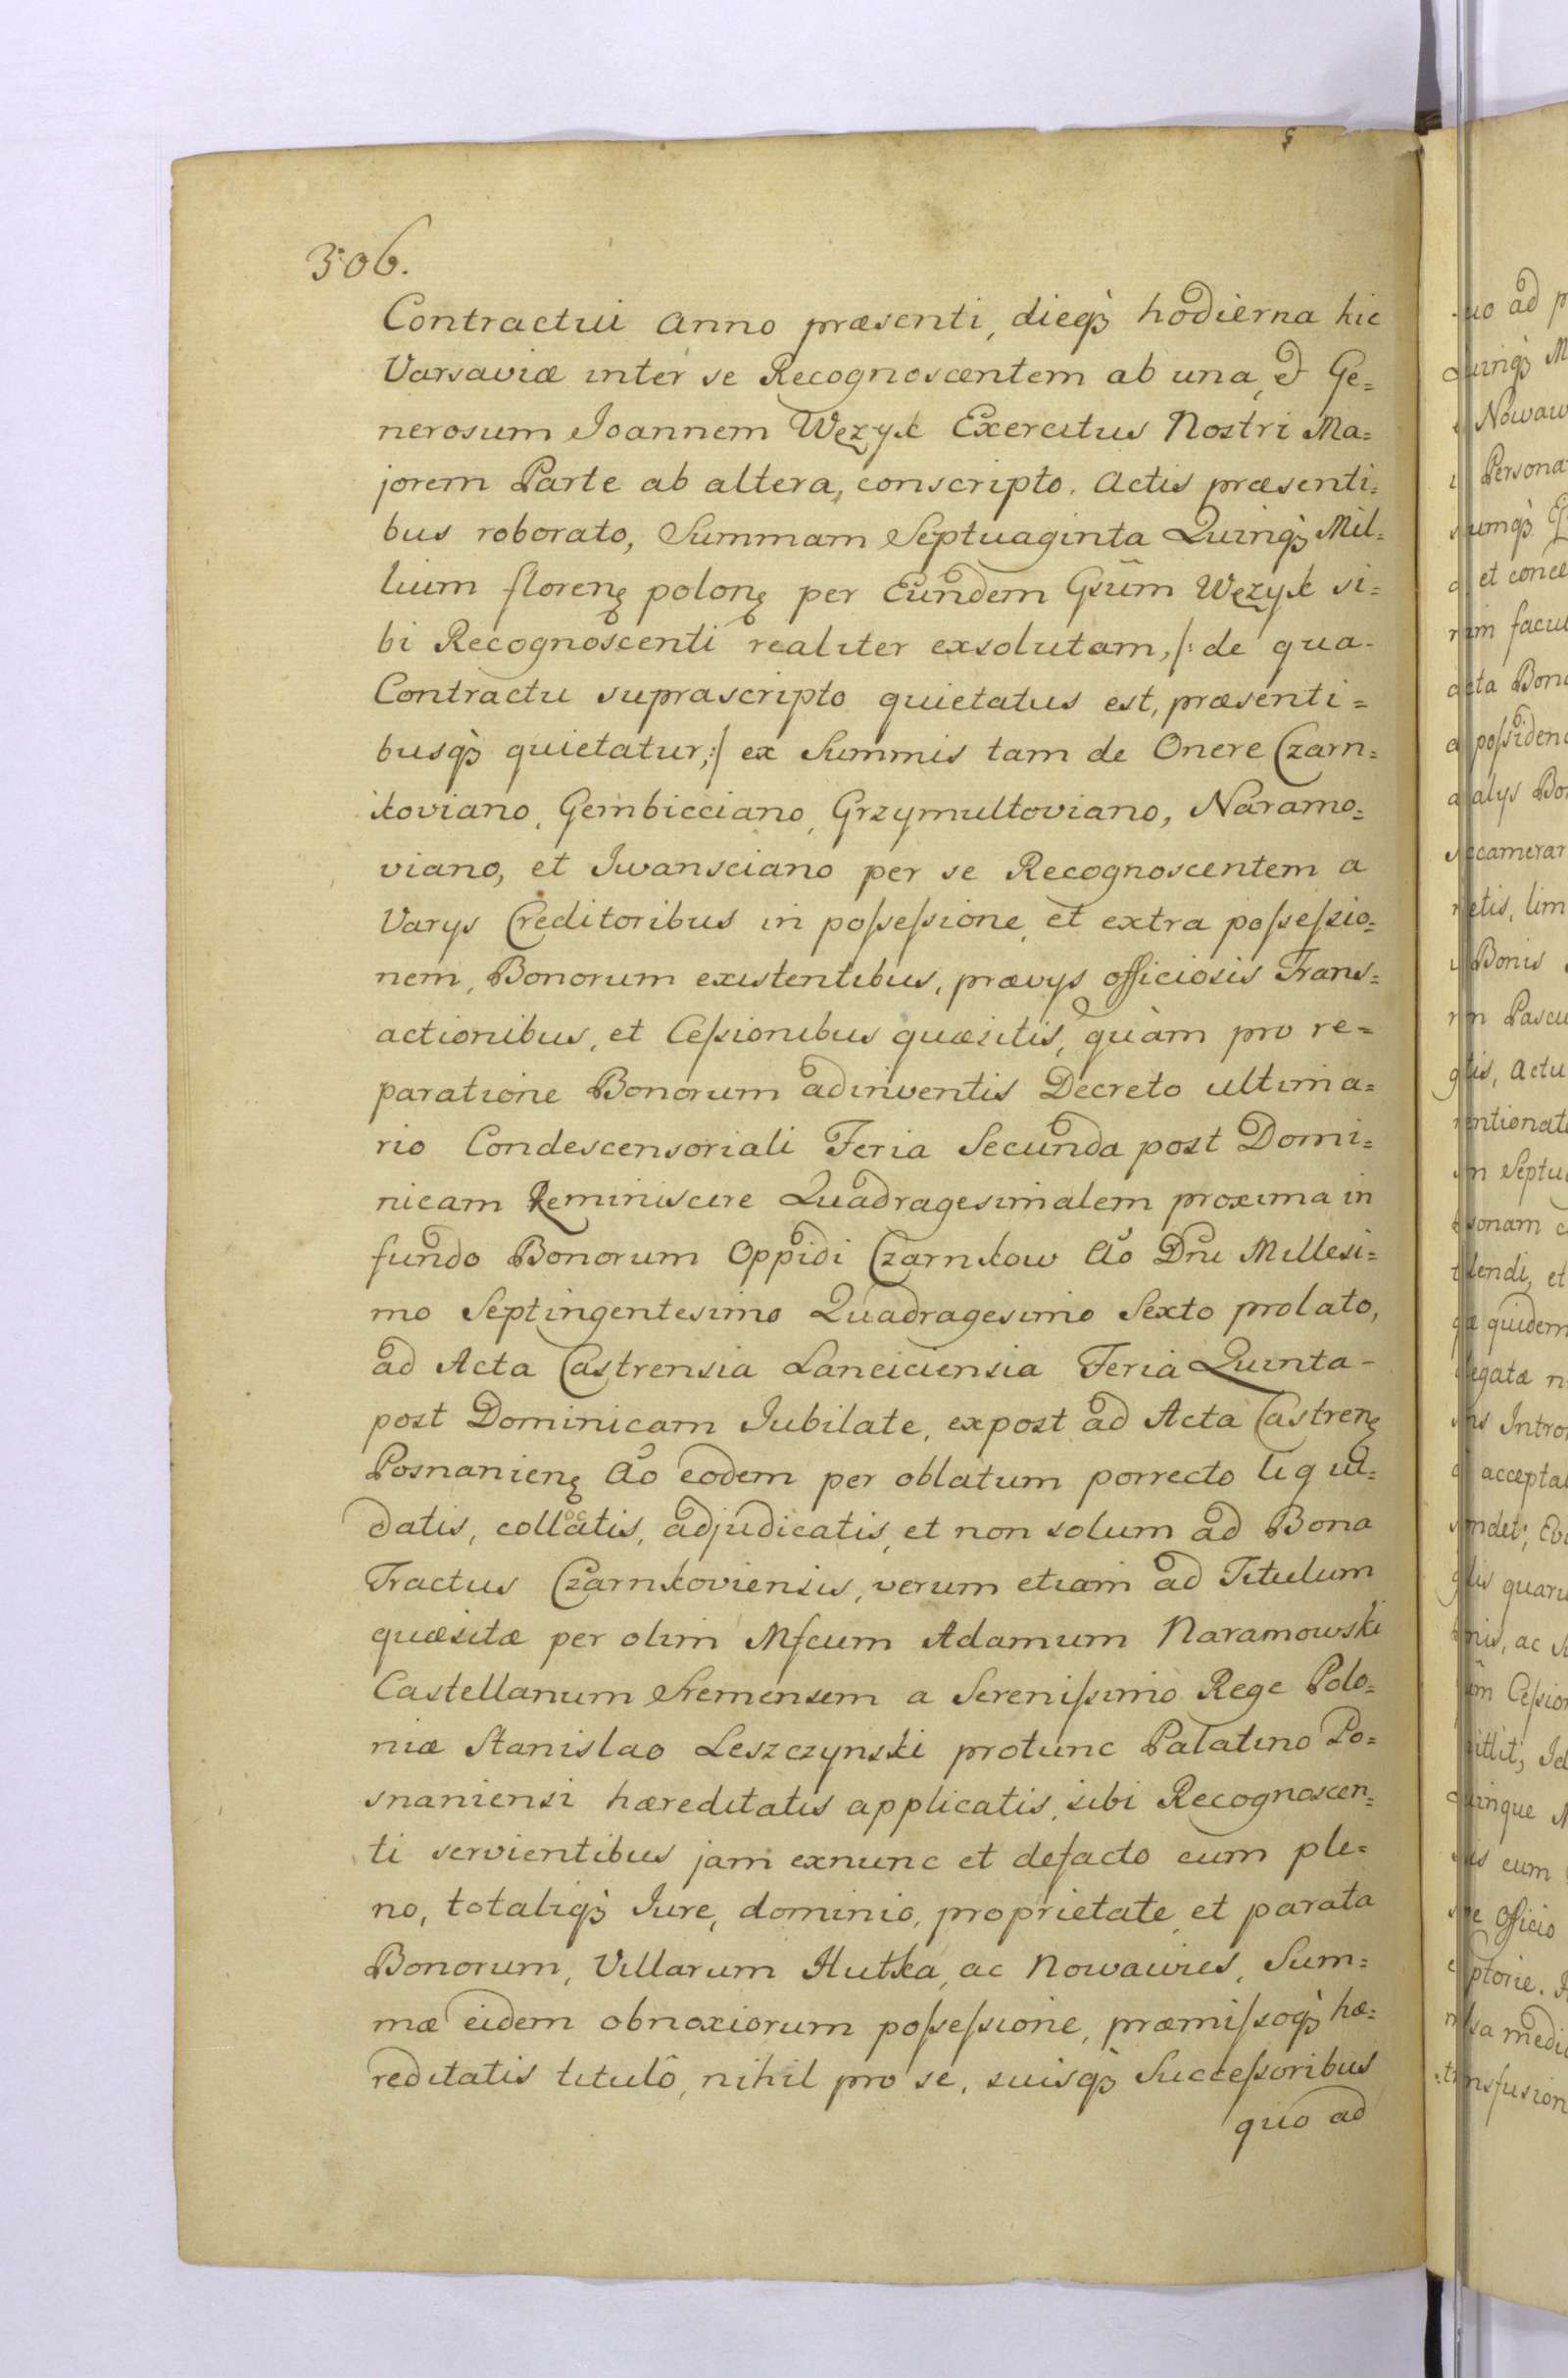 306.
Contractui anno præsenti, dieq3 hodierna hic
Varsaviæ inter se Recognoscentem ab una, et Ge=
nerosum Joannem Wężyk Exercitus Nostri Ma=
jorem Parte ab altera, conscripto. Actis præsenti=
bus roborato, Summam Septuaginta Quinq3 Mil=
lium florenę polonę per Eundem Gsum Wężyk si=
bi Recognoscenti realiter exsolutam, /: de qua-
Contractu suprascripto quietatus est, præsenti=
busq3 quietatur, :/ ex Summis tam de Onere Czarn=
koviano, Gembicciano, Grzymultoviano, Naramo=
viano, et Iwansciano per se Recognoscentem a
Varys Creditoribus in possessione, et extra possessio=
nem, Bonorum existentibus, prævys officiosis Trans=
actionibus, et Cessionibus quæsitis, quàm pro re=
paratione Bonorum adinventis Decreto ultima=
rio Condescensoriali Feria Secunda post Domi=
nicam Reminiscere Quadragesimalem proxima in
fundo Bonorum Oppidi Czarnkow Ao Dni Millesi=
mo Septingentesimo Quadragesimo Sexto prolato,
ad Acta Castrensia Lanciciensia Feria Quinta-
post Dominicam Jubilate, expost ad Acta Castrenę
Posnanienę Ao eodem per oblatum porrecto liqui=
datis, collocatis, adjudicatis, et non solum ad Bona
Tractus Czarnkoviensis, verum etiam ad Titulum
quæsitæ per olim Mfcum Adamum Naramowski
Castellanum Sremensem a Serenissimo Rege Polo=
niæ Stanislao Leszczynski protunc Palatino Po=
snaniensi hæreditatis applicatis, sibi Recognoscen=
ti servientibus jam exnunc et defacto cum ple=
no, totaliq3 Jure, dominio, proprietate, et parata
Bonorum, Villarum Hutka, ac Nowawies, Sum=
mæ eidem obnoxiorum possessione, præmissoq3 hæ=
reditatis titulô, nihil pro se, suisq3 Successoribus
quo ad